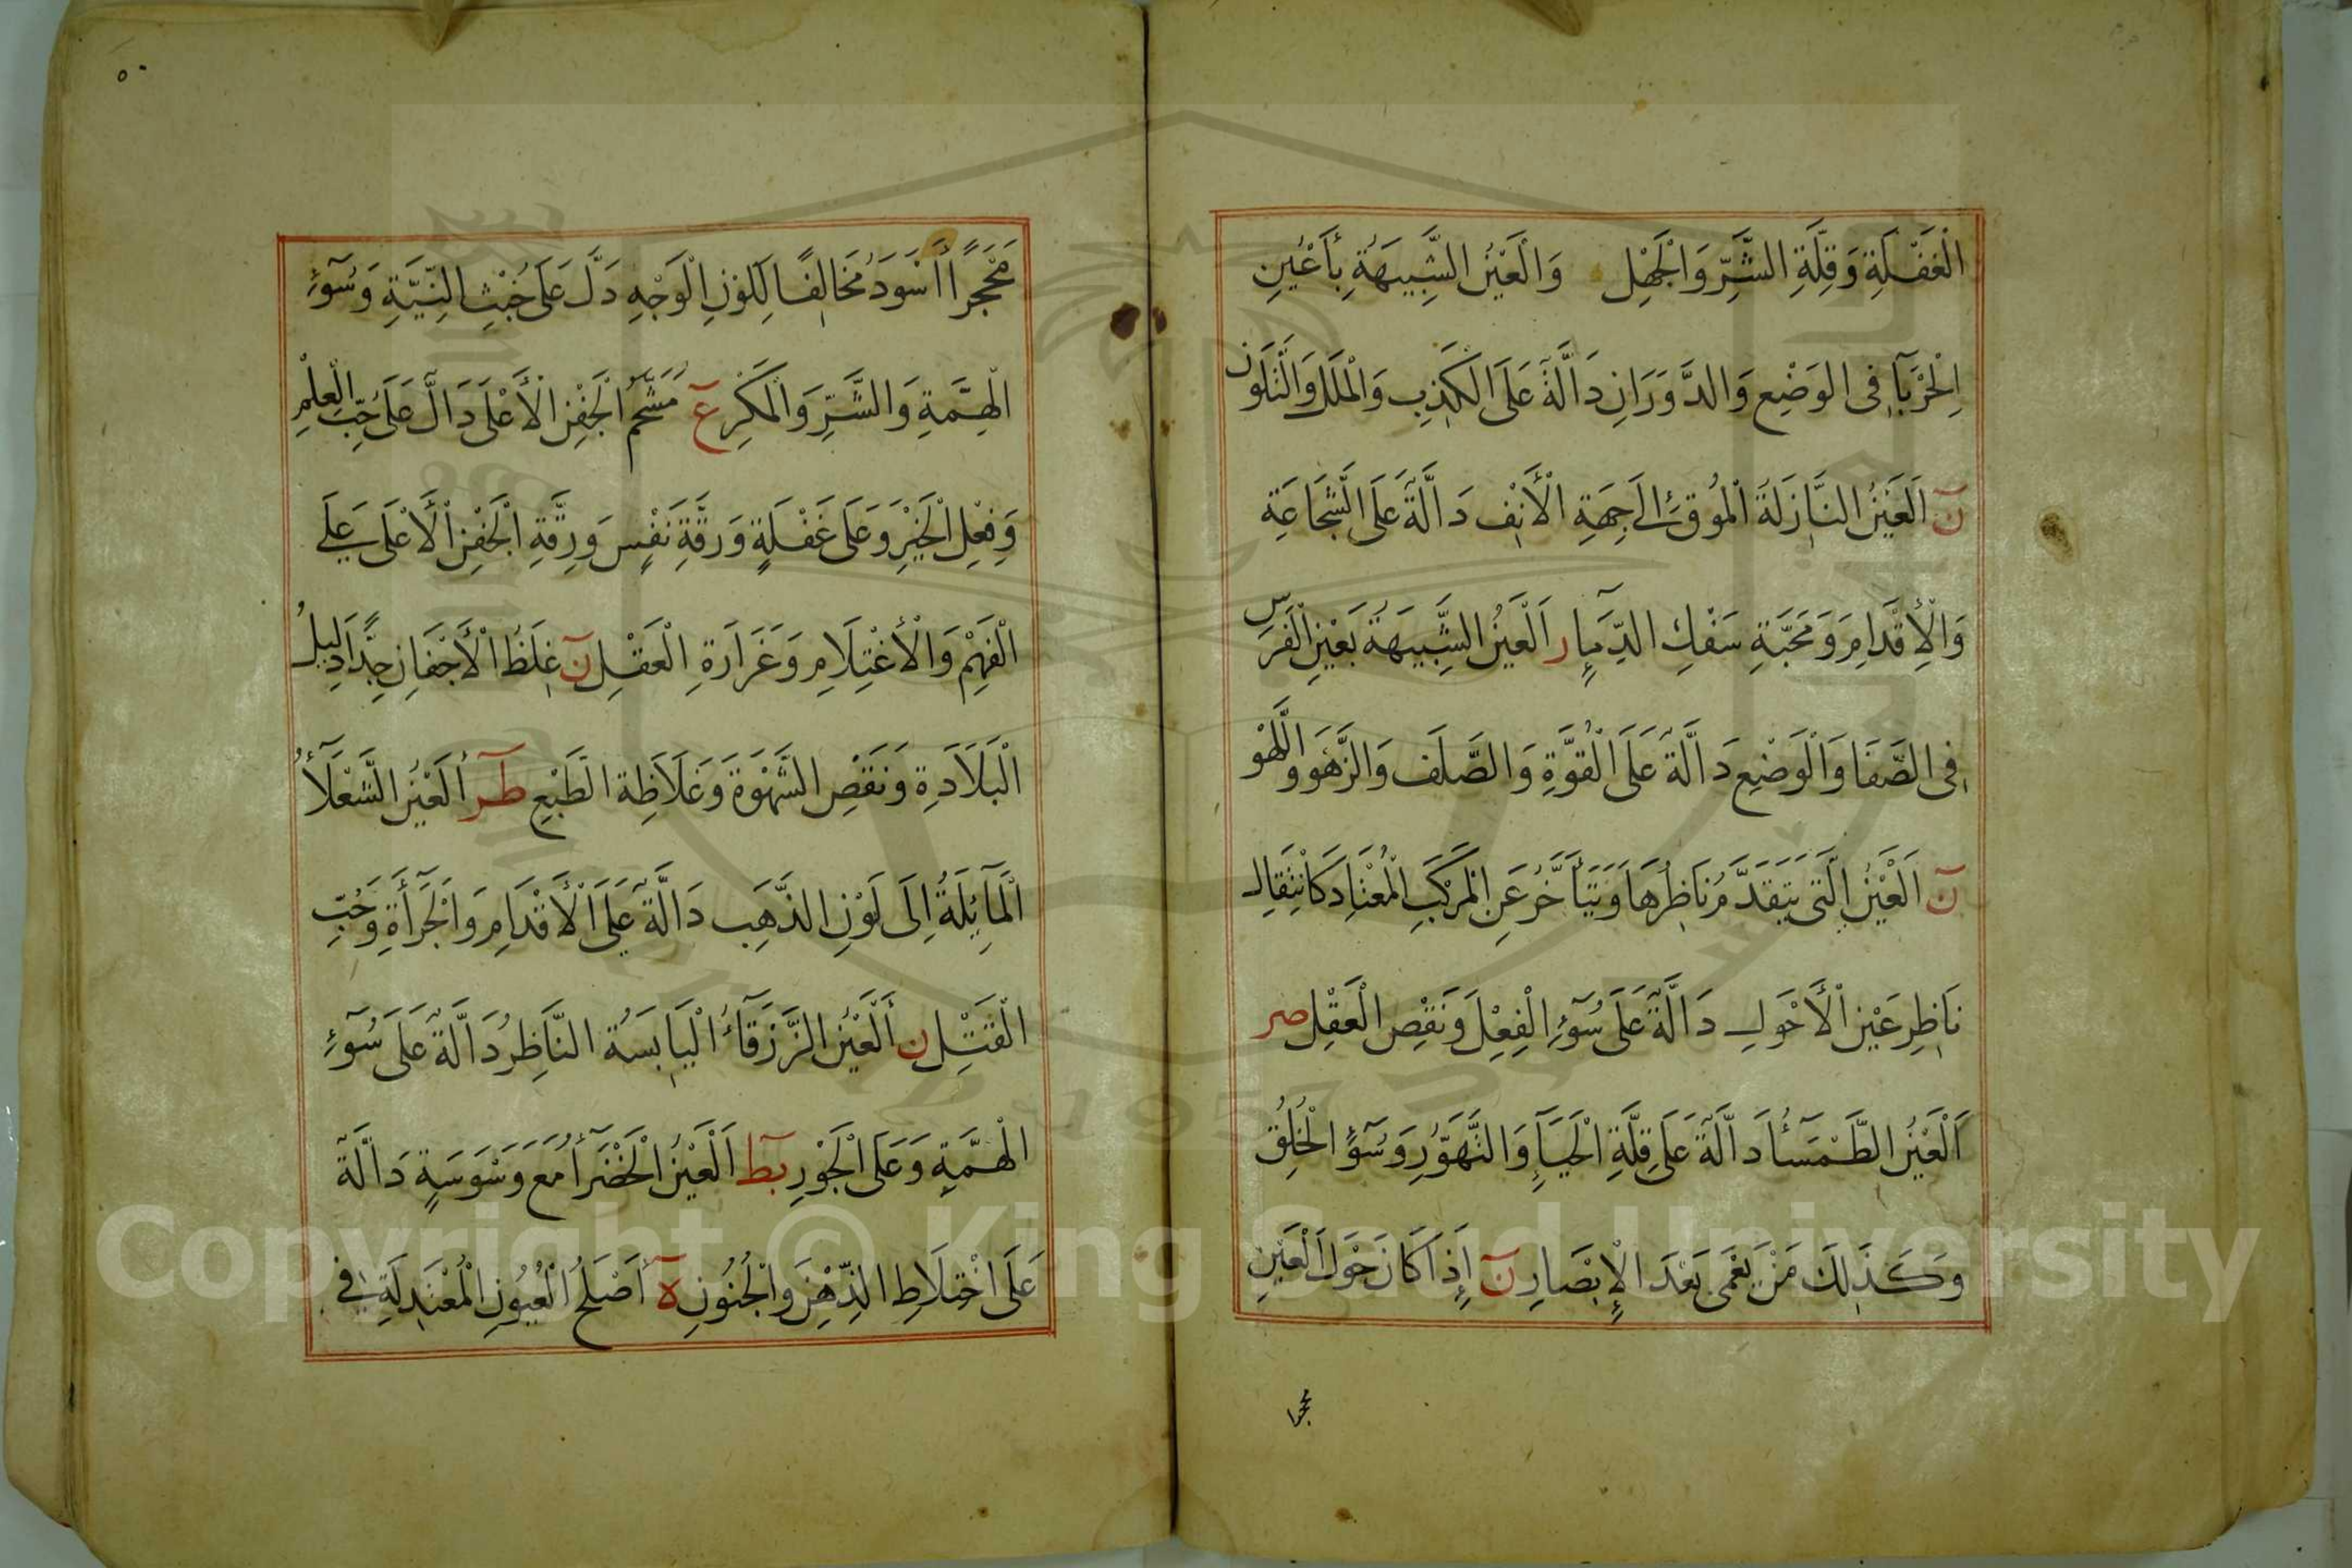 الْغَفْلَةِ وَقِلَّةِ الشَّرِّ وَالْجَهْلِ وَالْعَيْنُ الشَّبِيهَةُ بِأَعْيُنِ
الْحَرْبَآءِ فِى الوَضْعِ وَالدَّوَرَانِ دَالَّةٌ عَلَى الكَذِبِ وَالْمَلَلِ وَالتَّلَوُّنِ
ن اَلْعَيْنُ النَّازِلَةُ الْمُوقِ إِلَى جِهَةِ الْأَنْفِ دَالَّةٌ عَلَى الشَّجَاعَةِ
وَالْإِقْدَامِ وَمَحَبَّةِ سَفْكِ الدِّمَآءِ ر اَلْعَيْنُ الشَّبِيهَةُ بَعَيْنِ الْفَرَسِ
فِى الصَّفَا وَالْوَضْعِ دَالَّةٌ عَلَى الْقُوَّةِ وَالصَّلَفِ وَالزَّهْوِ وَاللَّهْوِ
ن اَلْعَيْنُ الَّتِى يَتَقَدَّمُ نَاظِرُهَا وَيَتَأَخَّرُ عَنِ الْمَرْكَبِ الْمُعْتَادِ كَانْتِقَالِ
نَاظِرِ عَيْنِ الْأَحْوَلِ دَالَّةٌ عَلَى سُوٓءِ الْفِعْلِ وَنَقْصِ الْعَقْلِ صر
اَلْعَيْنُ الطَّمْسَآءُ دَالَّةٌ عَلَى قِلَّةِ الْحَيَآءِ وَالتَّهَوُّرِ وَسُوٓءِ الْخُلُقِ
وَكَذَلِكَ مَنْ يَعْمَى بَعْدَ الْإِبْصَارِ ن إِذَا كَانَ حَوْلَ الْعَيْنِ
محجرا
٥٠
مَحْجَرًا أَسْوَدَ مُخَالِفًا لِلَوْنِ الْوَجْهِ دَلَّ عَلَى خُبْثِ النِّيَّةِ وَسُوٓءِ
الْهِمَّةِ وَالشَّرِّ وَالْمَكْرِ ع مُشَحَّمُ الْجَفْنِ الْأَعْلَى دَالٌّ عَلَى حُبِّ الْعِلْمِ
وَفِعْلِ الْخَيْرِ وَعَلَى غَفْلَةٍ وَرِقَّةِ نَفْسٍ وَرِقَّةِ الْجَفْنِ الْأَعْلَى عَلَى
الْفَهْمِ وَالْأَغْتِلَامِ وَغَرَارَةِ الْعَقْلِ ن غِلَظُ الْأَجْفَانِ جِدًّا دَلِيلُ
الْبَلَادَةِ وَنَقْصِ الشَّهْوَةَ وَغَلَاظِة الطَّبْعِ طر أَلْعَيْنُ الشَّعْلَآءُ
الْمَآئِلَةُ إِلَى لَوْنِ الذَّهَبِ دَالَّةٌ عَلَى الْأَقْدَامِ وَالْجَرَأَةِ وَحُبِّ
الْقَتْلِ ن أَلْعَيْنُ الزَّرْقَآءُ الْيَابِسَةُ النَّاظِرُ دَالَّةٌ عَلَى سُوٓءِ
الْهِمَّةِ وَعَلَى الْجَوْرِ بط اَلْعَيْنُ الْخَضْرَآءُ مَعَ وَسْوَسَةٍ دَالَّةٌ
عَلَى اخْتِلَاطِ الذِّهْنِ وَالْجُنُونِ ه أَصْلَحُ الْعُيُونِ الْمُعْتَدِلَةِ فِى
Copyright © King Saud University
1957